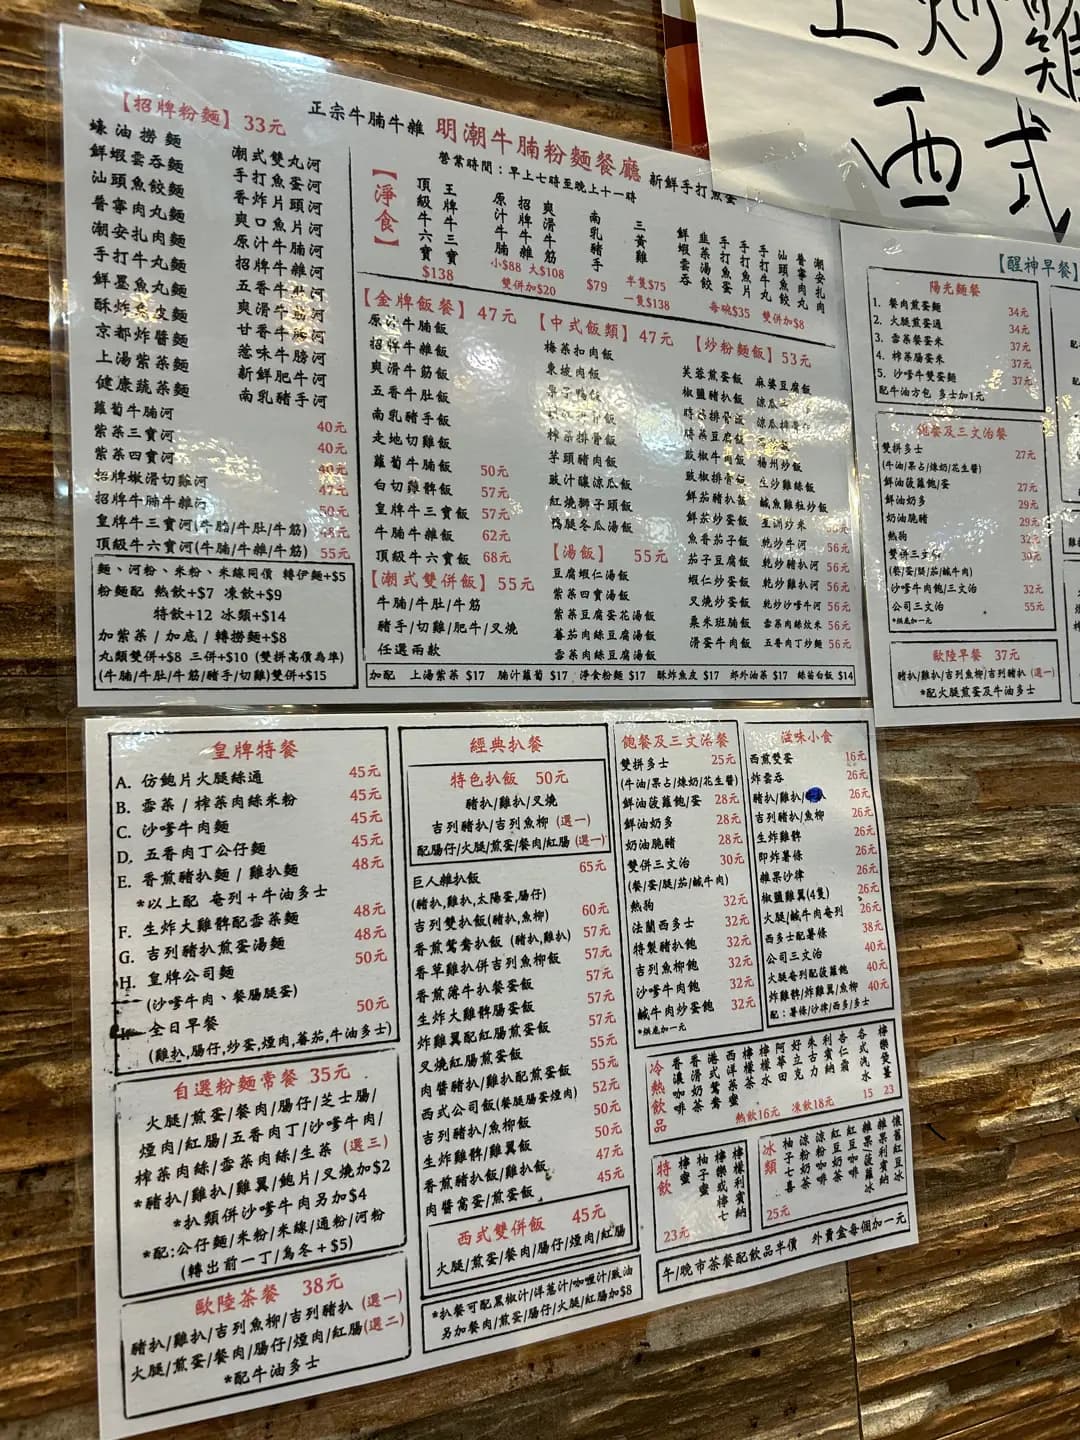 上炒雞
西式
【招牌粉麵】33元
蠔油撈麵
鮮蝦雲吞麵
汕頭魚餃麵
普寧肉丸麵
潮安扎肉麵
手打牛丸麵
鮮墨魚丸麵
酥炸魚皮麵
京都炸醬麵
上湯紫菜麵
健康蔬菜麵
潮式雙丸河
手打魚蛋河
香炸片頭河
爽口魚片河
原汁牛腩河
招牌牛雜河
五香牛肚河
爽滑牛筋河
甘香牛
惹味牛膀河
新鮮肥牛河
南乳豬手河
蘿蔔牛腩河 40元
紫菜三寶河 40元
紫菜四寶河 40元
招牌嫩滑切雞河 47元
招牌牛腩牛雜河 50元
皇牌牛三寶河(牛腩/牛肚/牛筋)
頂級牛六寶河(牛腩/牛雜/牛筋) 55元
麵、河粉、米粉、米線同價 轉伊麵+$5
粉麵配 熱飲+$7 凍飲+$9
特飲+12 冰類+$14
加紫菜/加底/轉撈麵+$8
丸類雙併+$8 三併+$10 (雙拼高價為準)
(牛腩/牛肚/牛筋/豬手/切雞)雙併+$15
正宗牛腩牛雜 明潮牛腩粉麵餐廳 新鮮手打魚蛋
營業時間：早上七時至晚上十一時
【淨食】
頂級牛六寶
王牌牛三寶
$138
原汁牛腩
招牌牛雜
爽滑牛筋
小$88 大$108
雙併加$20
南乳豬手
$79
三黃雞
半隻$75
一隻$138
鮮蝦雲吞
韭菜湯餃
手打魚蛋
手打魚片
手打牛丸
汕頭魚餃
普寧肉丸
潮安扎肉
每碗$35 雙併加$8
【金牌飯餐】47元
原汁牛腩飯
招牌牛雜飯
爽滑牛筋飯
五香牛肚飯
南乳豬手飯
走地切雞飯
蘿蔔牛腩飯 50元
白切雞髀飯 57元
皇牌牛三寶飯 57元
牛腩牛雜飯 62元
頂級牛六寶飯 68元
【潮式雙併飯】55元
牛腩/牛肚/牛筋
豬手/切雞/肥牛/叉燒
任選兩款
【中式飯類】47元
梅菜扣肉飯
東坡肉飯
榨菜排骨飯
芋頭豬肉飯
豉汁釀涼瓜飯
紅燒獅子頭飯
鴨腿冬瓜湯飯
【湯飯】 55元
豆腐蝦仁湯飯
紫菜四寶湯飯
紫菜豆腐蛋花湯飯
蕃茄肉絲豆腐湯飯
雪菜肉絲豆腐湯飯
【炒粉麵飯】53元
芙蓉煎蛋飯
椒鹽豬扒飯
時菜排骨飯
時菜豆腐飯
豉椒牛肉飯
豉椒排骨飯
鮮茄豬扒飯
鮮茄炒蛋飯
魚香茄子飯
茄子豆腐飯
蝦仁炒蛋飯
叉燒炒蛋飯
粟米班腩飯
滑蛋牛肉飯
麻婆豆腐飯
涼瓜排骨飯
楊州炒飯
生炒雞絲飯
鹹魚雞粒炒飯
星洲炒米
乾炒牛河 56元
乾炒豬扒河 56元
乾炒雞扒河 56元
乾炒沙嗲牛河 56元
雪菜肉絲炆米 56元
五香肉丁炒麵 56元
加配 上湯紫菜 $17 腩汁蘿蔔 $17 淨食粉麵 $17 酥炸魚皮 $17 郊外油菜 $17 絲苗白飯 $14
【醒神早餐】
陽光麵餐
1. 餐肉煎蛋麵 34元
2. 火腿煎蛋通 34元
3. 雪菜餐蛋米 37元
4. 榨菜腸蛋米 37元
5. 沙嗲牛雙蛋麵 37元
配牛油方包 多士加1元
飽餐及三文治餐
雙拼多士 27元
(牛油/果占/煉奶/花生醬)
鮮油菠蘿飽/蛋 27元
鮮油奶多 29元
奶油脆豬 29元
熱狗 32元
雙併三文治 30元
(餐/蛋/腿/茄/鹹牛肉)
沙嗲牛肉飽/三文治 32元
公司三文治 55元
*烘底加一元
歐陸早餐 37元
豬扒/雞扒/吉列魚柳/吉列豬扒 (選一)
*配火腿煎蛋及牛油多士
皇牌特餐
A. 仿鮑片火腿絲通 45元
B. 雪菜/榨菜肉絲米粉 45元
C. 沙嗲牛肉麵 45元
D. 五香肉丁公仔麵 45元
E. 香煎豬扒麵/雞扒麵 48元
*以上配 奄列+牛油多士
F. 生炸大雞髀配雪菜麵 48元
G. 吉列豬扒煎蛋湯麵 48元
H. 皇牌公司麵 50元
(沙嗲牛肉、餐腸腿蛋)
全日早餐 50元
(雞扒,腸仔,炒蛋,煙肉,蕃茄,牛油多士)
自選粉麵常餐 35元
火腿/煎蛋/餐肉/腸仔/芝士腸/
煙肉/紅腸/五香肉丁/沙嗲牛肉/
榨菜肉絲/雪菜肉絲/生菜 (選三)
*豬扒/雞扒/雞翼/鮑片/叉燒加$2
*扒類併沙嗲牛肉另加$4
*配:公仔麵/米粉/米線/通粉/河粉
(轉出前一丁/烏冬+$5)
歐陸茶餐 38元
豬扒/雞扒/吉列魚柳/吉列豬扒 (選一)
火腿/煎蛋/餐肉/腸仔/煙肉/紅腸(選二)
*配牛油多士
經典扒餐
特色扒飯 50元
豬扒/雞扒/叉燒
吉列豬扒/吉列魚柳 (選一)
配腸仔/火腿/煎蛋/餐肉/紅腸 (選一)
巨人雜扒飯 65元
(豬扒,雞扒,太陽蛋,腸仔)
吉列雙扒飯(豬扒,魚柳) 60元
香煎鴛鴦扒飯 (豬扒,雞扒) 57元
香草雞扒併吉列魚柳飯 57元
香煎薄牛扒餐蛋飯 57元
生炸大雞髀腸蛋飯 57元
炸雞翼配紅腸煎蛋飯 57元
叉燒紅腸煎蛋飯 55元
肉醬豬扒/雞扒配煎蛋飯 55元
西式公司飯(餐腿腸蛋煙肉) 52元
吉列豬扒/魚柳飯 50元
生炸雞髀/雞翼飯 50元
香煎豬扒飯/雞扒飯 47元
肉醬窩蛋/煎蛋飯 45元
西式雙併飯 45元
火腿/煎蛋/餐肉/腸仔/煙肉/紅腸
*扒餐可配黑椒汁/洋蔥汁/咖喱汁/豉油
另加餐肉/煎蛋/腸仔/火腿/紅腸加$8
飽餐及三文治餐
雙拼多士 25元
(牛油/果占/煉奶/花生醬)
鮮油菠蘿飽/蛋 28元
鮮油奶多 28元
奶油脆豬 28元
雙併三文治 30元
(餐/蛋/腿/茄/鹹牛肉)
熱狗 32元
法蘭西多士 32元
特製豬扒飽 32元
吉列魚柳飽 32元
沙嗲牛肉飽 32元
鹹牛肉炒蛋飽 32元
*烘底加一元
滋味小食
西煎雙蛋 16元
炸雲吞 26元
豬扒/雞扒/牛扒 26元
吉列豬扒/魚柳 26元
生炸雞髀 26元
即炸薯條 26元
雜果沙律 26元
椒鹽雞翼(4隻) 26元
火腿/鹹牛肉奄列 26元
西多士配薯條 38元
公司三文治 40元
火腿奄列配菠蘿飽 40元
炸雞髀/炸雞翼/魚柳 40元
配：薯條/沙律/西多/多士
冷熱飲品
香濃咖啡
香滑奶茶
港式鴛鴦
西洋菜蜜
檸檬茶
檸檬水
阿華田
好立克
朱古力
利賓納
杏仁霜
各式汽水
檸樂煲薑
熱飲16元 凍飲18元 15 23
特飲
檸蜜
柚子蜜
檸樂或檸七
檸檬利賓納
23元
冰類
柚子七喜
涼粉奶茶
涼粉咖啡
紅豆奶茶
紅豆咖啡
雜果/菠蘿冰
雜果利賓納
懷舊紅豆冰
25元
午/晚市茶餐配飲品半價 外賣盒每個加一元